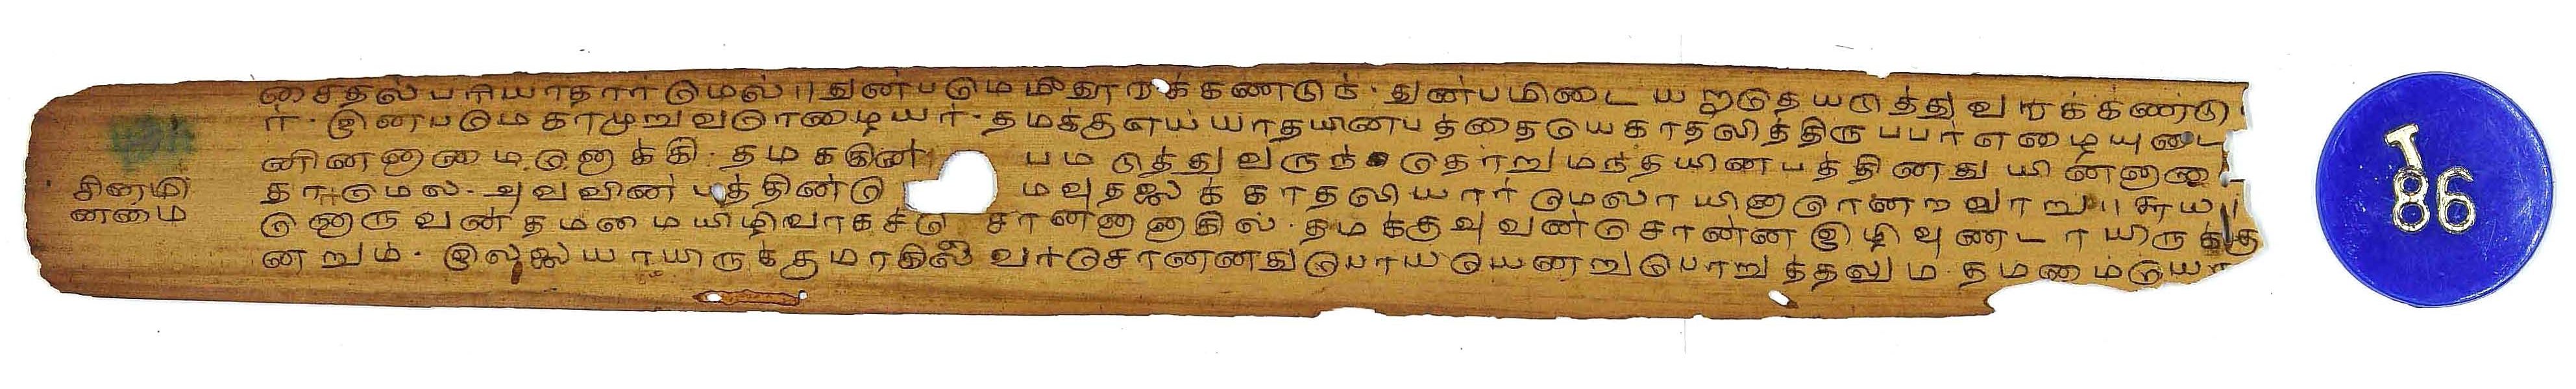 சைதல்பரியாதார் மேல்॥துன்பமேமீதூரக்கண்டும். துன்பமிடையறாதேயடுத்துவரக்கண்டு
ர். இனபமேகாமுறுவரேழையர். தமக்குஎய்யாதயினபத்தையேகாதலித்திருப்பர்எழையுடை
னினனாமை. னேக்கி. தமககின் பமடுத்து வருந் தோறுமந்தயினபத்தினது யின்னா
சினமி
தார்மேல. அவவின்பத்தின்மே மவுதலைக்காதலியார் மேலாயினாரென்றவாறு॥ சுய
னமை
னொருவன்தம்மையிழிவாகச்சொன்னானாகில். தமக்குஅவன்சொன்னஇழிவுண்டாயிருக்கு
னறும். இல்லையாயிருக்குமாகில் அவர்சொனனதுபொய்யெனறுபொறுத்தலும. தமமைமேய
T
86